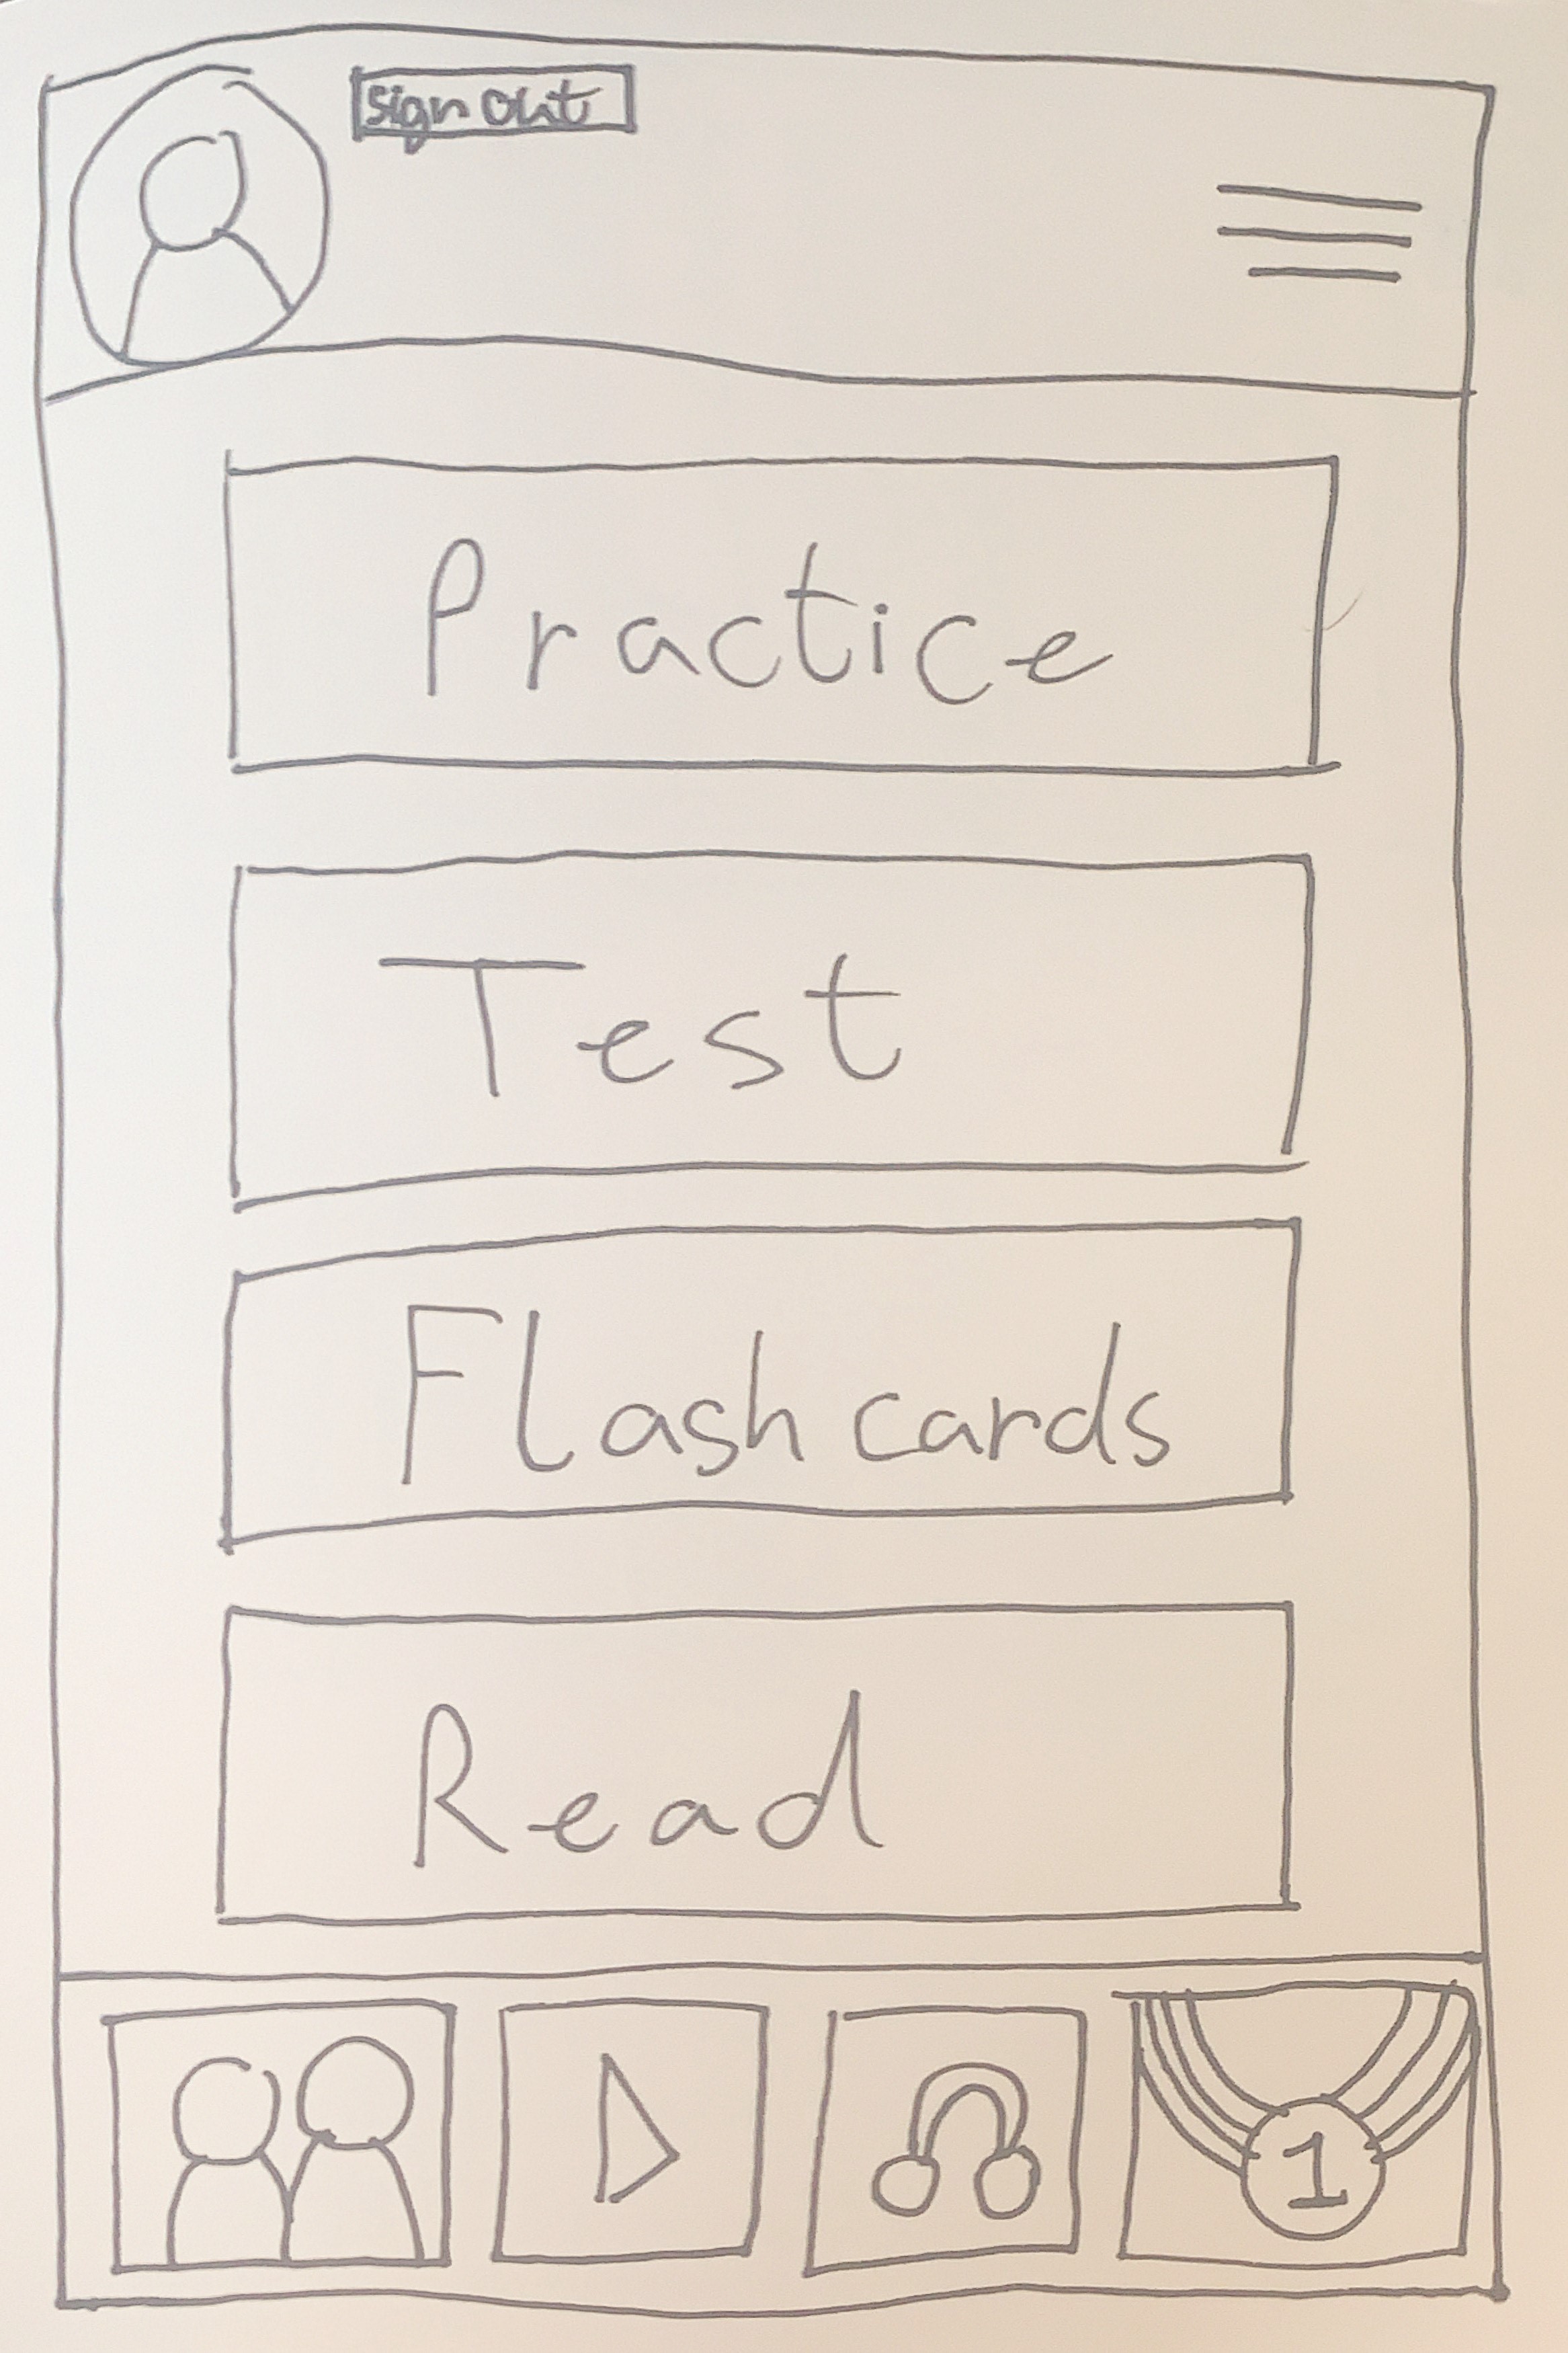 sign out
Practice
Test
Flash cards
Read
1